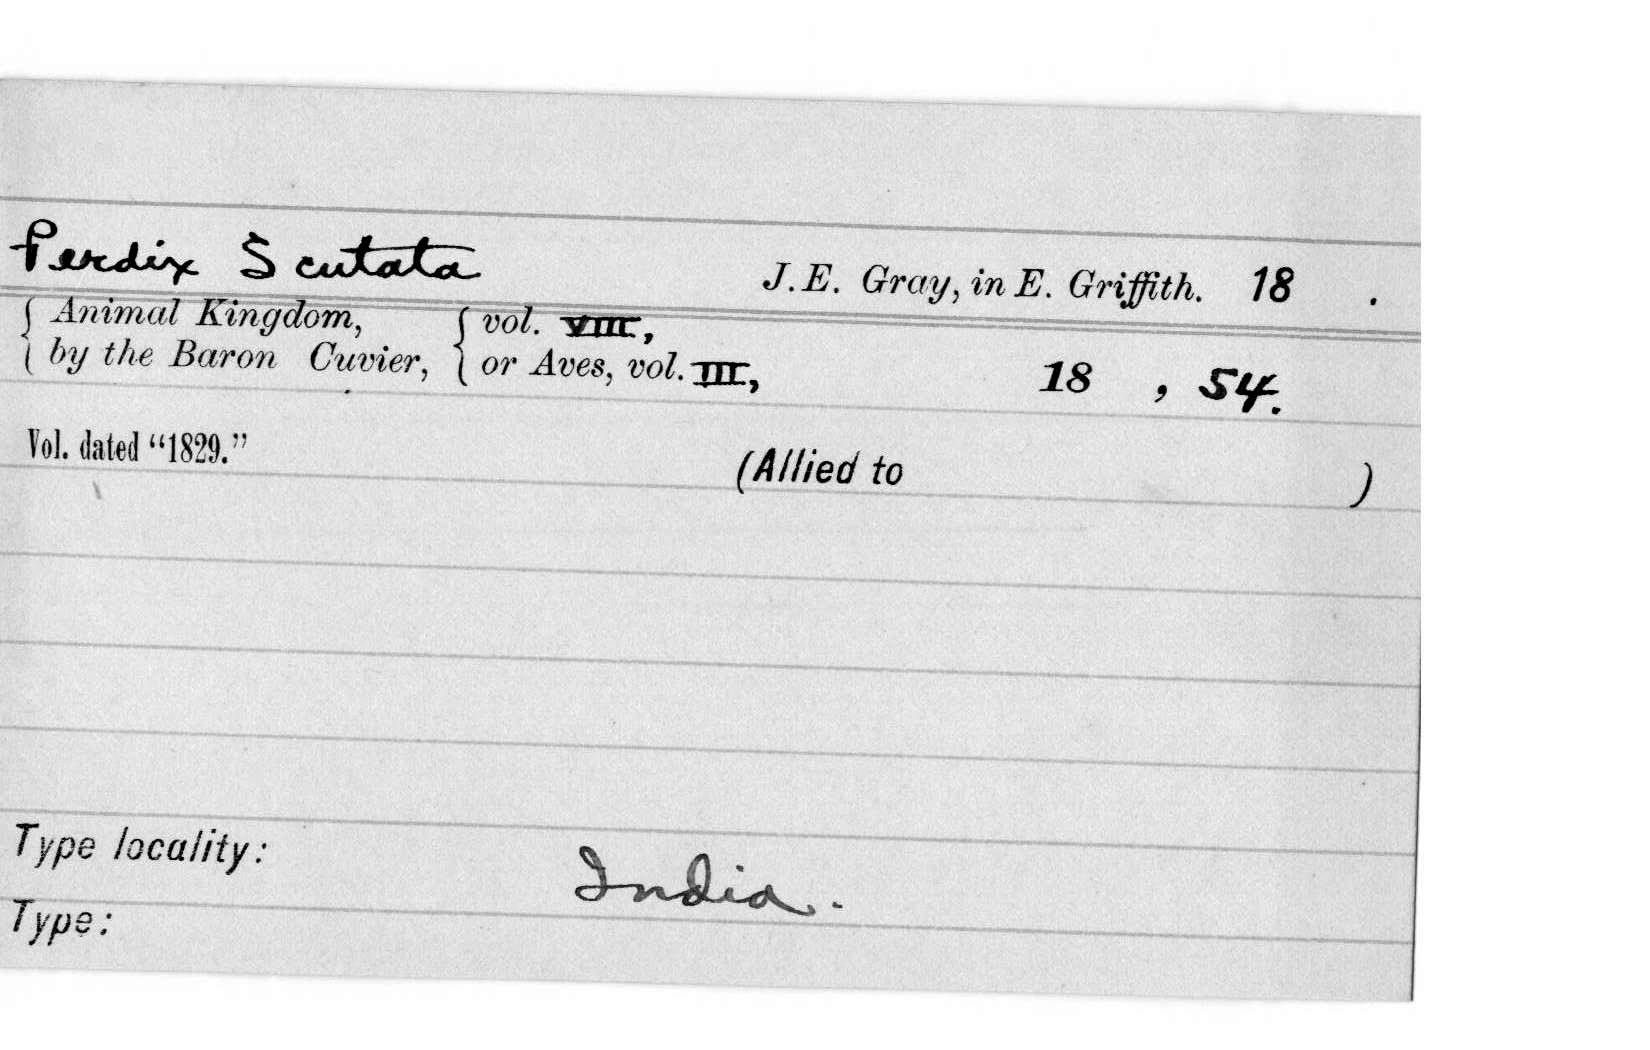 Perdix Scutata J.E. Gray, in E. Griffith. 18 .
{ Animal Kingdom, { vol. VIII,
{ by the Baron Cuvier, { or Aves, vol. III, 18 , 54.
Vol. dated “1829.” (Allied to )
Type locality: India.
Type: